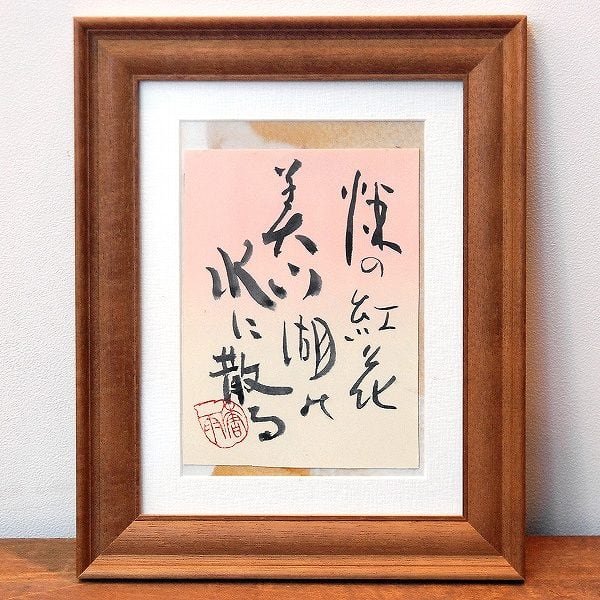 の紅花
美い湖の
水に散る